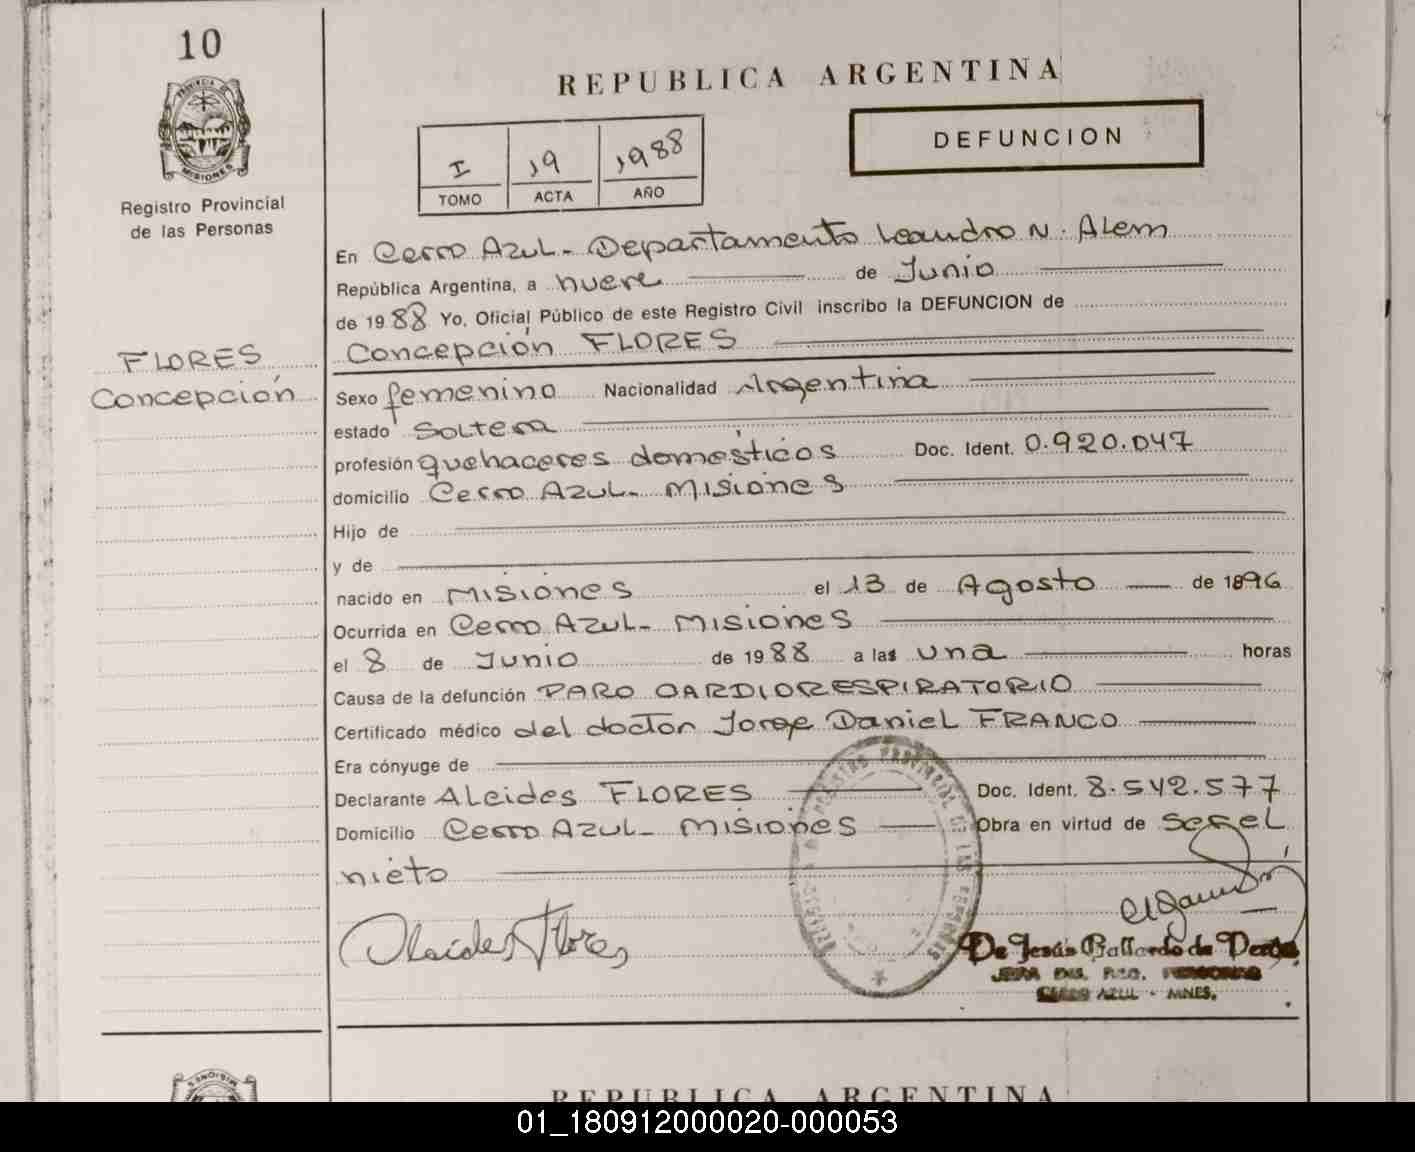 10
REPUBLICA ARGENTINA
PROVINCIA DE
MISIONES
Registro Provincial
de las Personas
I 19 1988
TOMO ACTA AÑO
DEFUNCION
En Cerro Azul - Departamento Leandro N. Alem
República Argentina, a nueve de Junio
de 1988 Yo, Oficial Público de este Registro Civil inscribo la DEFUNCION de
Concepción FLORES
FLORES
Concepción
Sexo femenino Nacionalidad Argentina
estado Soltera
profesión quehaceres domésticos Doc. Ident. 0.920.047
domicilio Cerro Azul - Misiones
Hijo de
y de
nacido en Misiones el 13 de Agosto de 1896
Ocurrida en Cerro Azul - Misiones
el 8 de Junio de 1988 a las una horas
Causa de la defunción PARO CARDIORESPIRATORIO
Certificado médico del doctor Jorge Daniel FRANCO
Era cónyuge de
Declarante Alcides FLORES Doc. Ident. 8.542.577
Domicilio Cerro Azul - Misiones Obra en virtud de ser el
nieto
Alcides Flores
REGISTRO PROVINCIAL DE LAS PERSONAS
De Jesús Gallardo de
CERRO AZUL - MNES.
MISIONES
REPUBLICA ARGENTINA
01_180912000020-000053